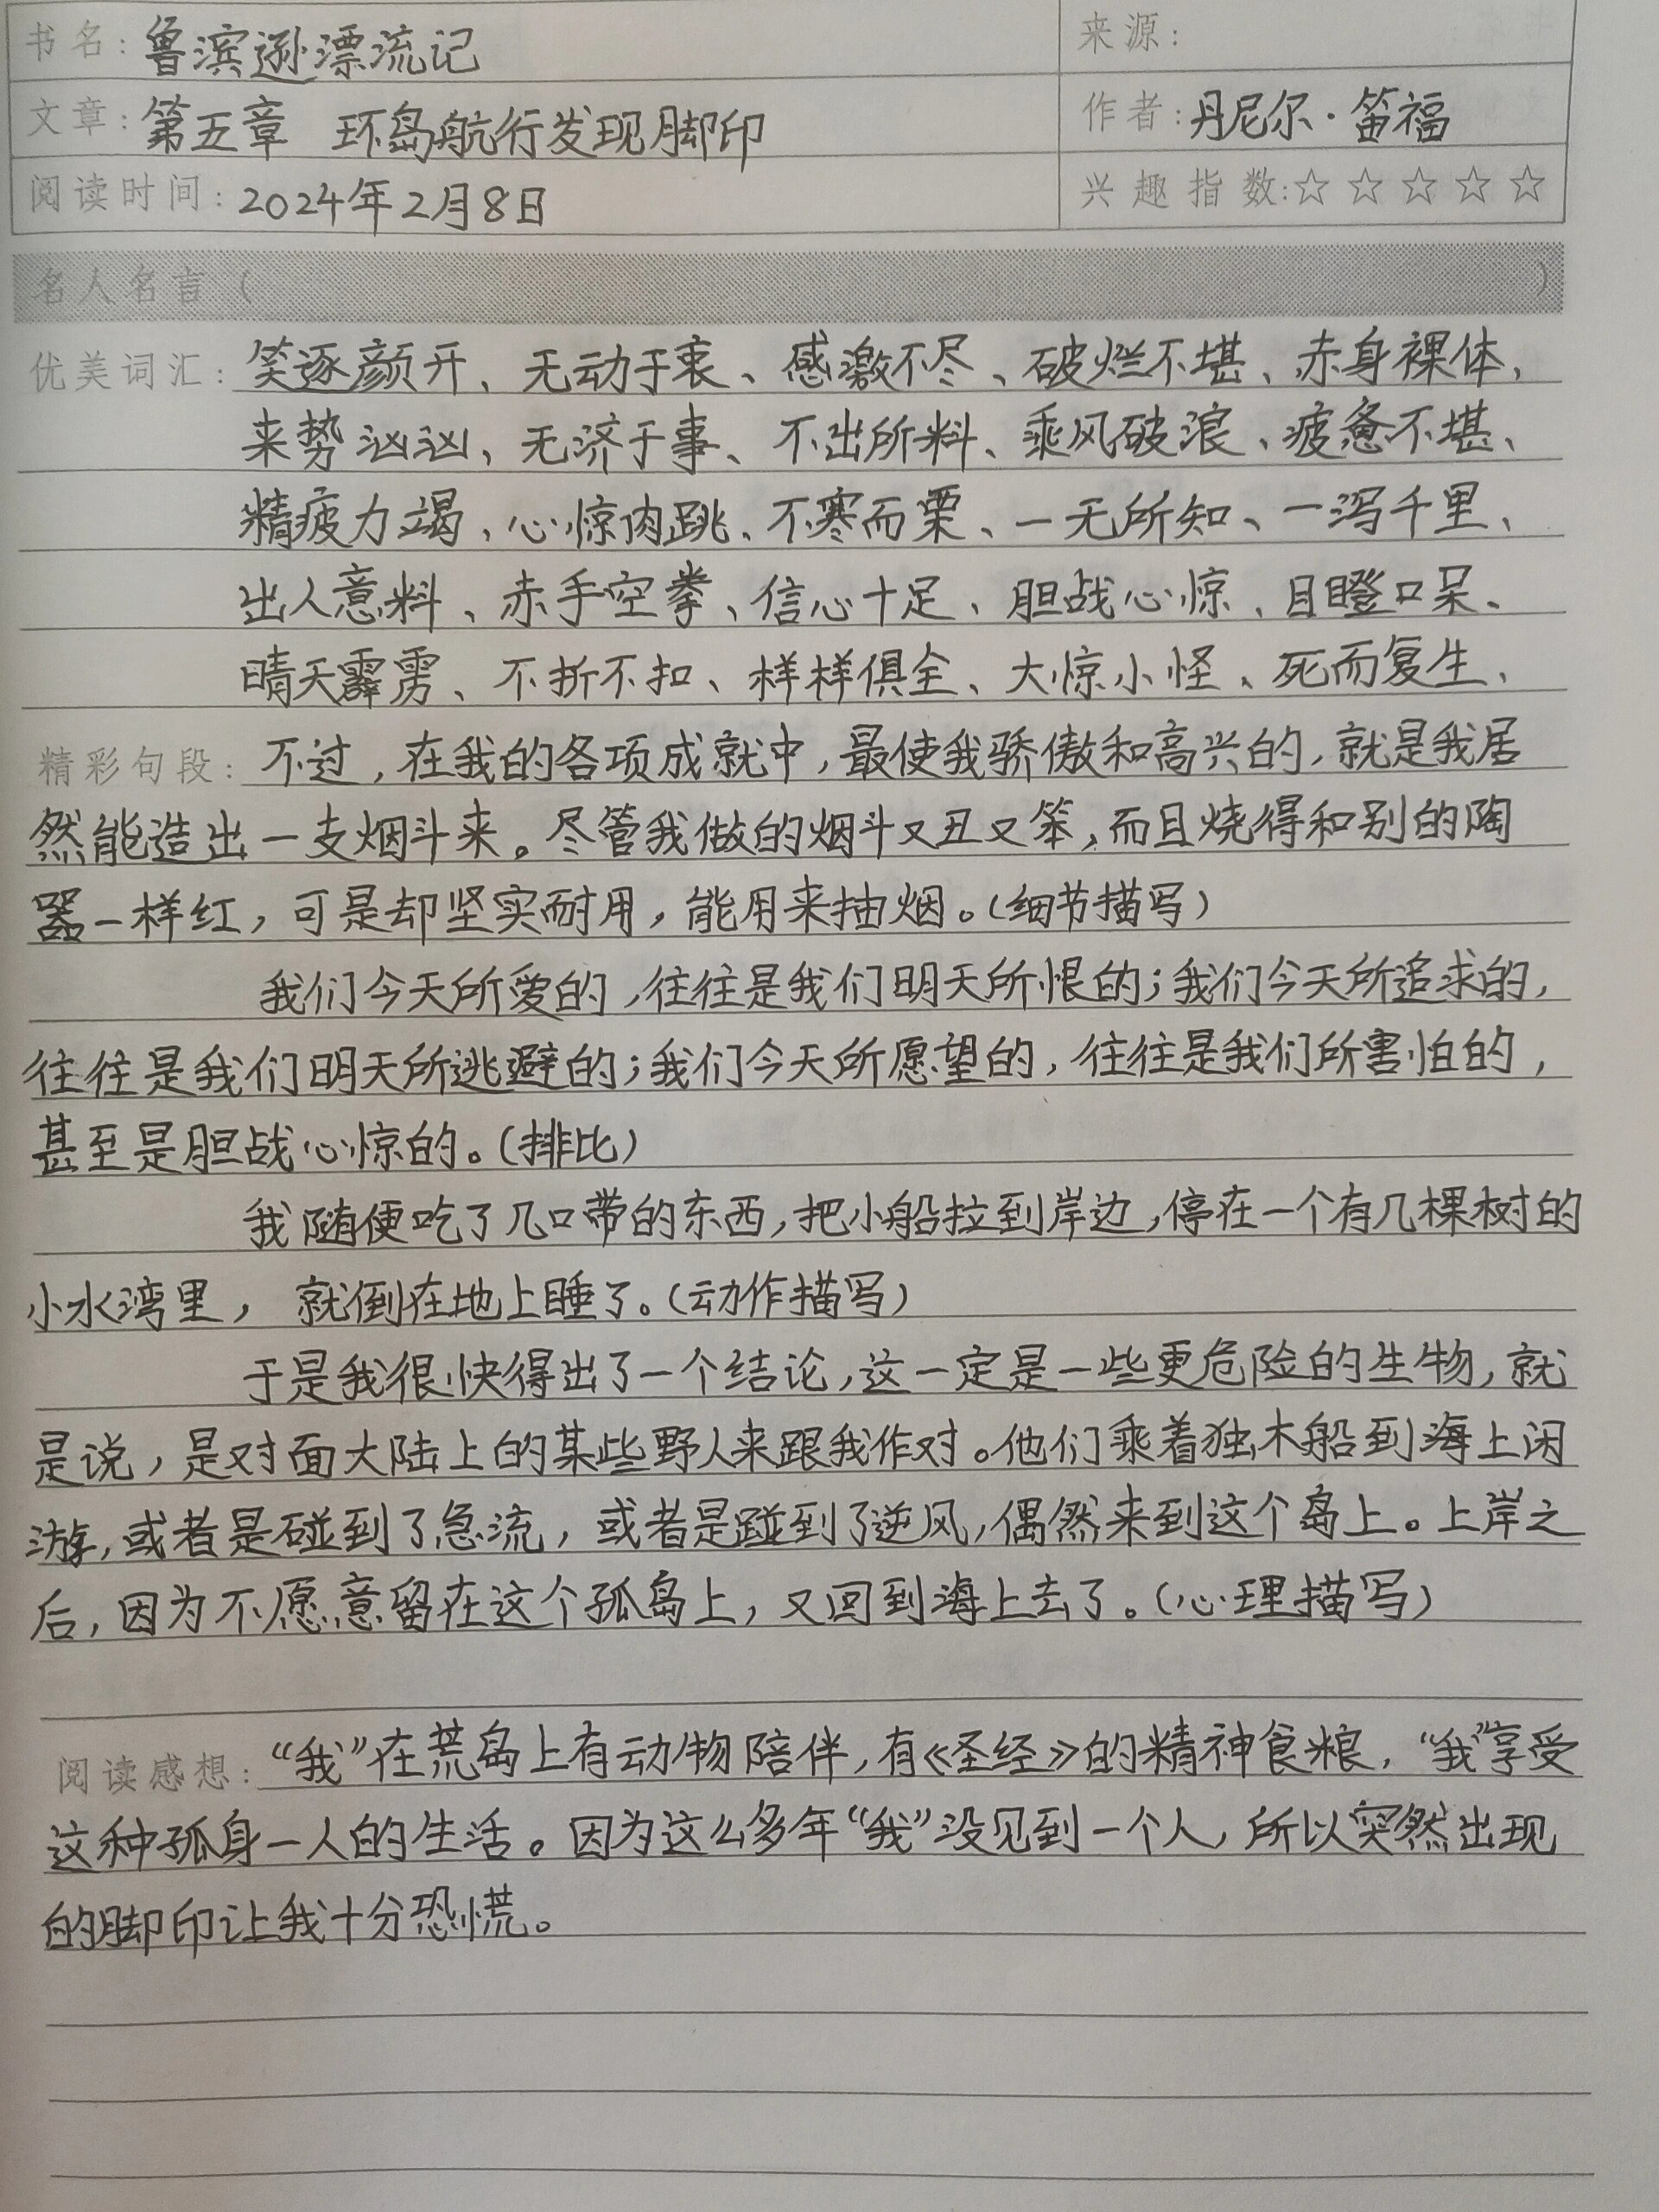 书名：鲁滨逊漂流记 来源：
文章：第五章 环岛航行发现脚印 作者：丹尼尔·笛福
阅读时间：2024年2月8日 兴趣指数：☆☆☆☆☆
名人名言（ ）
优美词汇：笑逐颜开、无动于衷、感激不尽、破烂不堪、赤身裸体、
来势汹汹、无济于事、不出所料、乘风破浪、疲惫不堪、
精疲力竭、心惊肉跳、不寒而栗、一无所知、一泻千里、
出人意料、赤手空拳、信心十足、胆战心惊、目瞪口呆、
晴天霹雳、不折不扣、样样俱全、大惊小怪、死而复生、
精彩句段：不过，在我的各项成就中，最使我骄傲和高兴的，就是我居
然能造出一支烟斗来。尽管我做的烟斗又丑又笨，而且烧得和别的陶
器一样红，可是却坚实耐用，能用来抽烟。（细节描写）
我们今天所爱的，往往是我们明天所恨的；我们今天所追求的，
往往是我们明天所逃避的；我们今天所愿望的，往往是我们所害怕的，
甚至是胆战心惊的。（排比）
我随便吃了几口带的东西，把小船拉到岸边，停在一个有几棵树的
小水湾里，就倒在地上睡了。（动作描写）
于是我很快得出了一个结论，这一定是一些更危险的生物，就
是说，是对面大陆上的某些野人来跟我作对。他们乘着独木船到海上闲
游，或者是碰到了急流，或者是碰到了逆风，偶然来到这个岛上。上岸之
后，因为不愿意留在这个孤岛上，又回到海上去了。（心理描写）
阅读感想：“我”在荒岛上有动物陪伴，有《圣经》的精神食粮，“我”享受
这种孤身一人的生活。因为这么多年“我”没见到一个人，所以突然出现
的脚印让我十分恐慌。